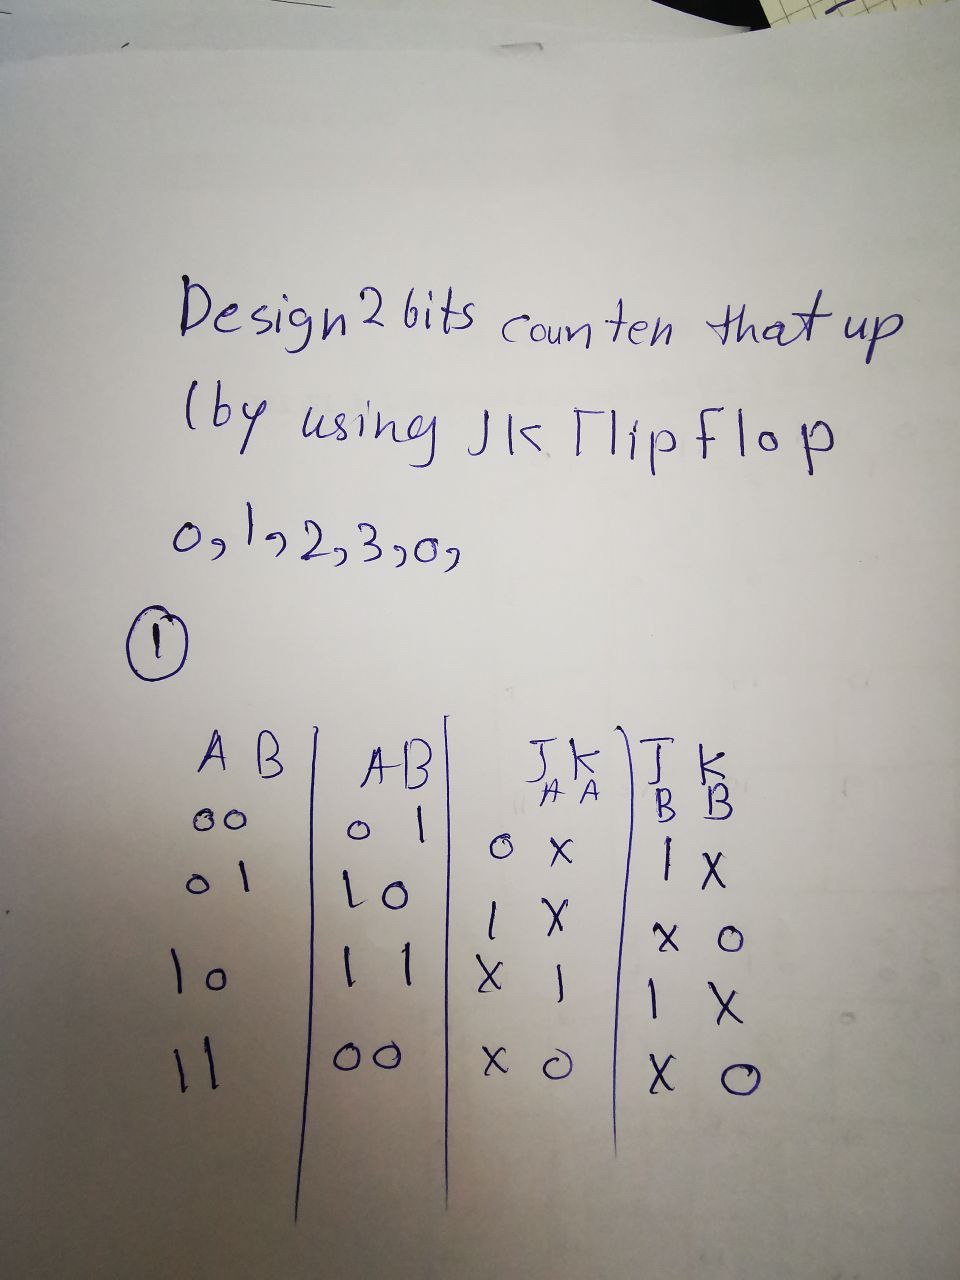 Design 2 bits counten that up
(by using JK Flip flop
0,1,2,3,0,
1
A B | A B | J K | J K
A A B B
00 | 0 1 | 0 X | 1 X
0 1 | 1 0 | 1 X | X 0
1 0 | 1 1 | X 1 | 1 X
1 1 | 00 | X 0 | X 0